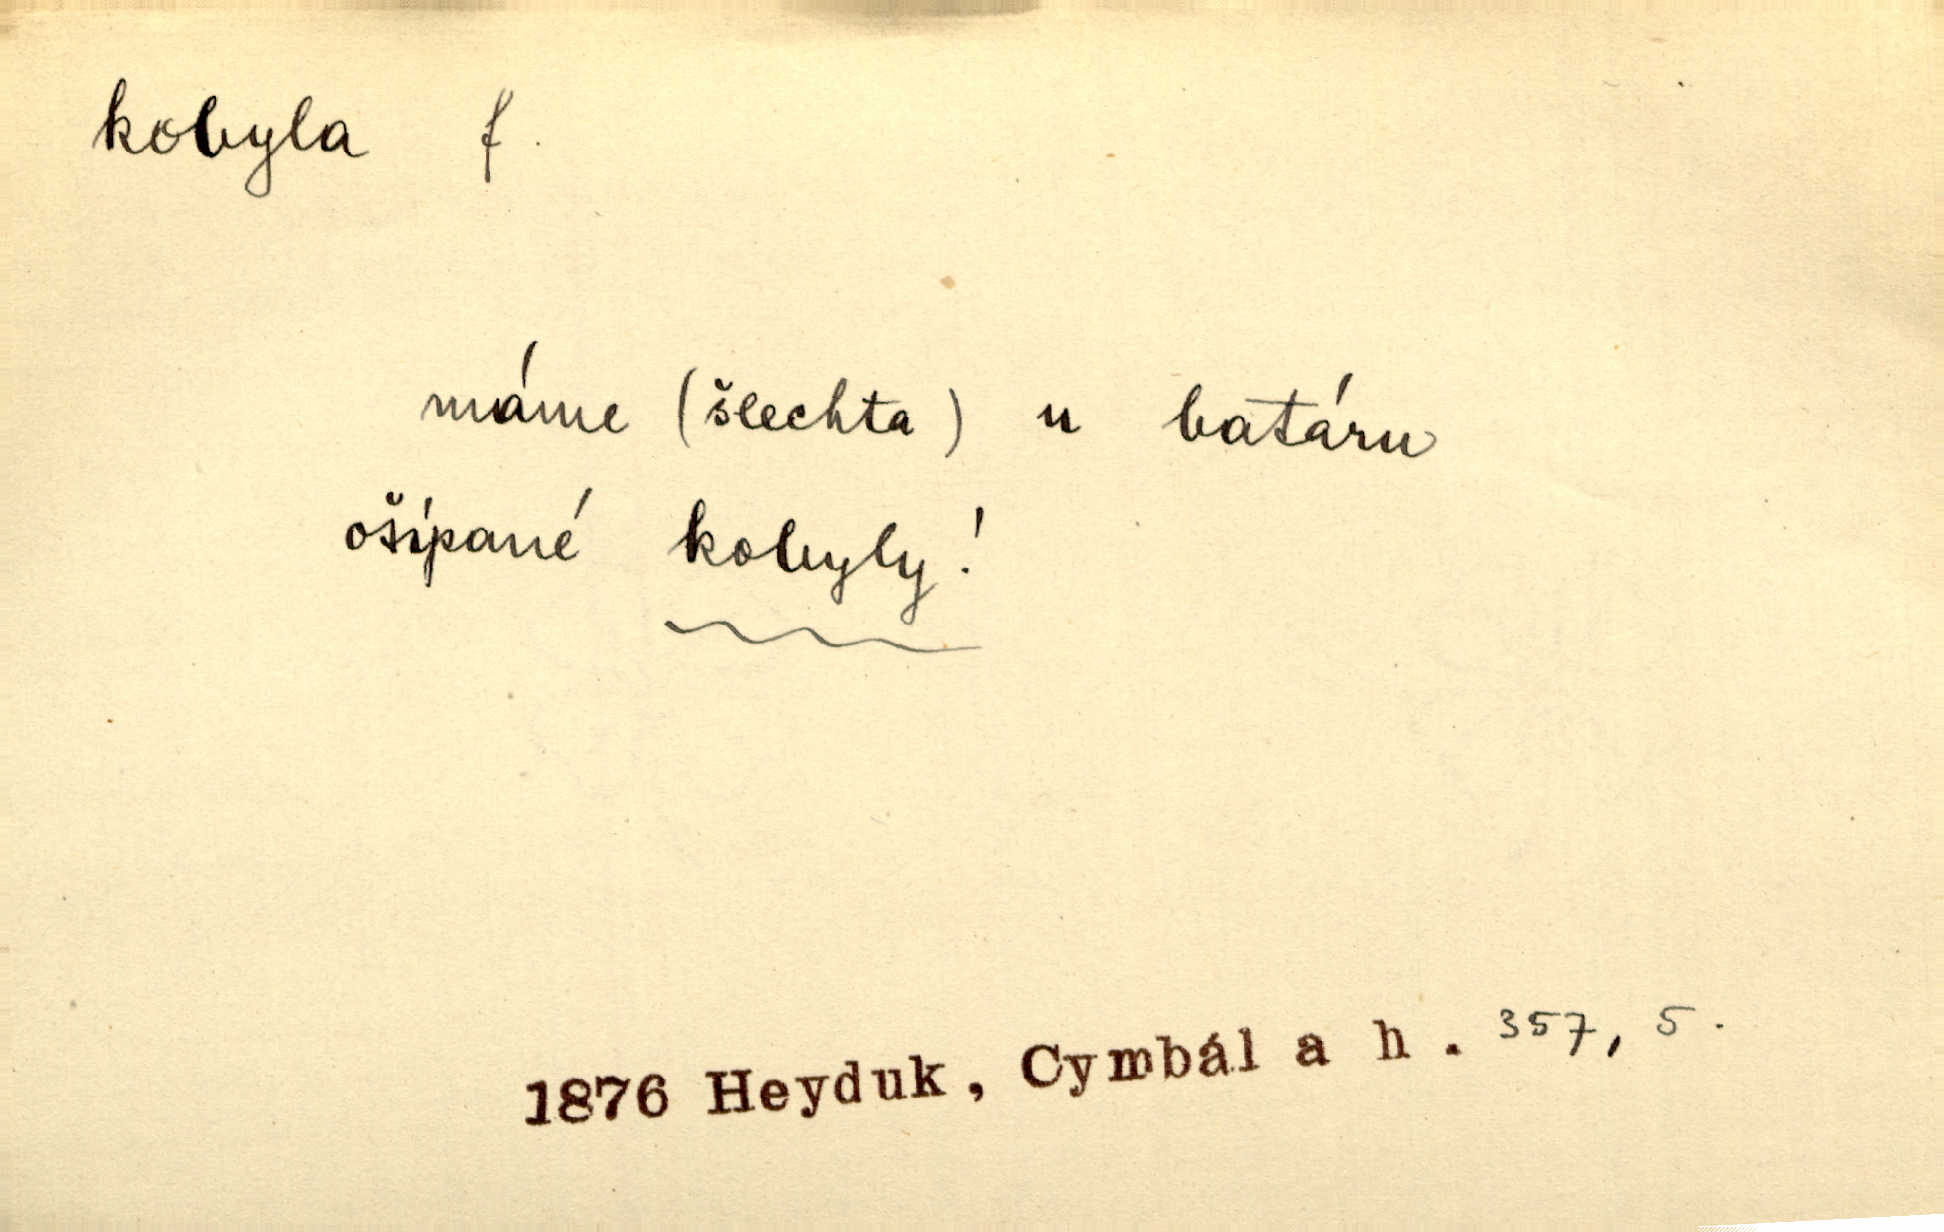 kobyla f.
máme (šlechta) u batáru
ošípané kobyly!
1876 Heyduk, Cymbál a h. 357, 5.